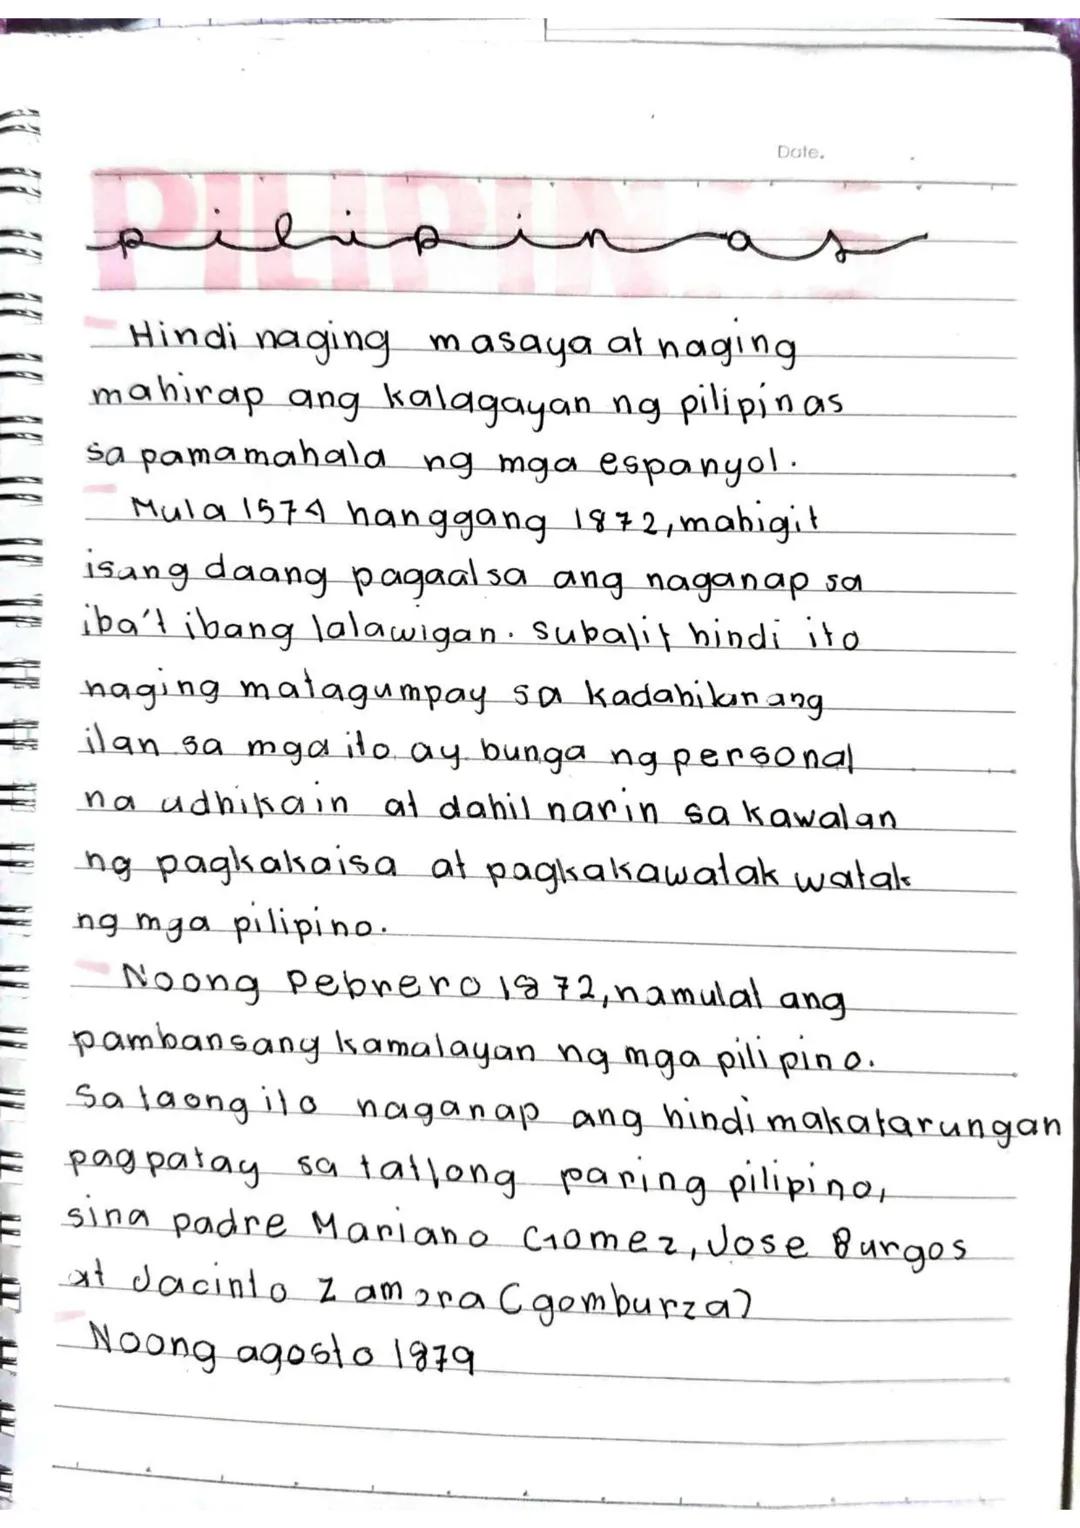 Date.
PILIPINAS
pilipinas
Hindi naging masaya at naging
mahirap ang kalagayan ng pilipinas
sa pamamahala ng mga espanyol.
Mula 1574 hanggang 1872, mahigit
isang daang pagaalsa ang naganap sa
iba't ibang lalawigan. subalit hindi ito
naging matagumpay sa kadahilanang
ilan sa mga ito ay bunga ng personal
na udhikain at dahil narin sa kawalan
ng pagkakaisa at pagkakawatak watak
ng mga pilipino.
Noong Pebrero 1872, namulat ang
pambansang kamalayan ng mga pilipino.
Sa taong ito naganap ang hindi makatarungan
pagpatay sa tatlong paring pilipino,
sina padre Mariano Gomez, Jose Burgos
at Jacinto Zamora (gomburza)
Noong agosto 1879